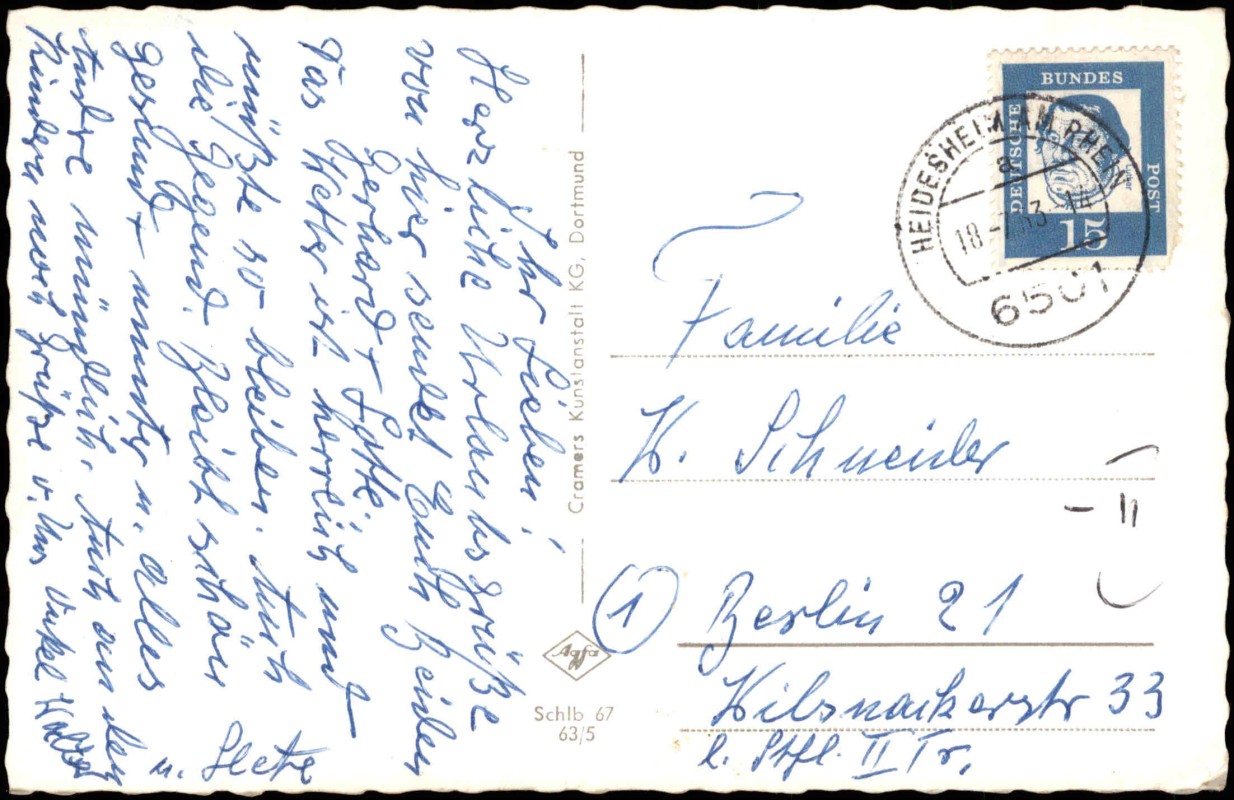 Ihr Lieben!
Herzliche Urlaubsgrüße
von hier sendet Euch Beiden
Gerhard + Lotte.
Das Wetter ist herrlich und
müßte so bleiben. Auch
die Gegend. Bleibt schön
gesund + munter u. alles
Andre mündlich. Auch an den
Kindern noch Grüße v. Uns Onkel
u.
Cramers Kunstanstalt KG, Dortmund
Agfa
Schlb 67
63/5
DEUTSCHE BUNDES POST
Luther
15
HEIDESHEIM AM RHEIN
a
18.-7.63.-14
6501
Familie
K. Schneider
- 11
1 Berlin 21
Wilsnackerstr 33
l. Stfl. II Tr.